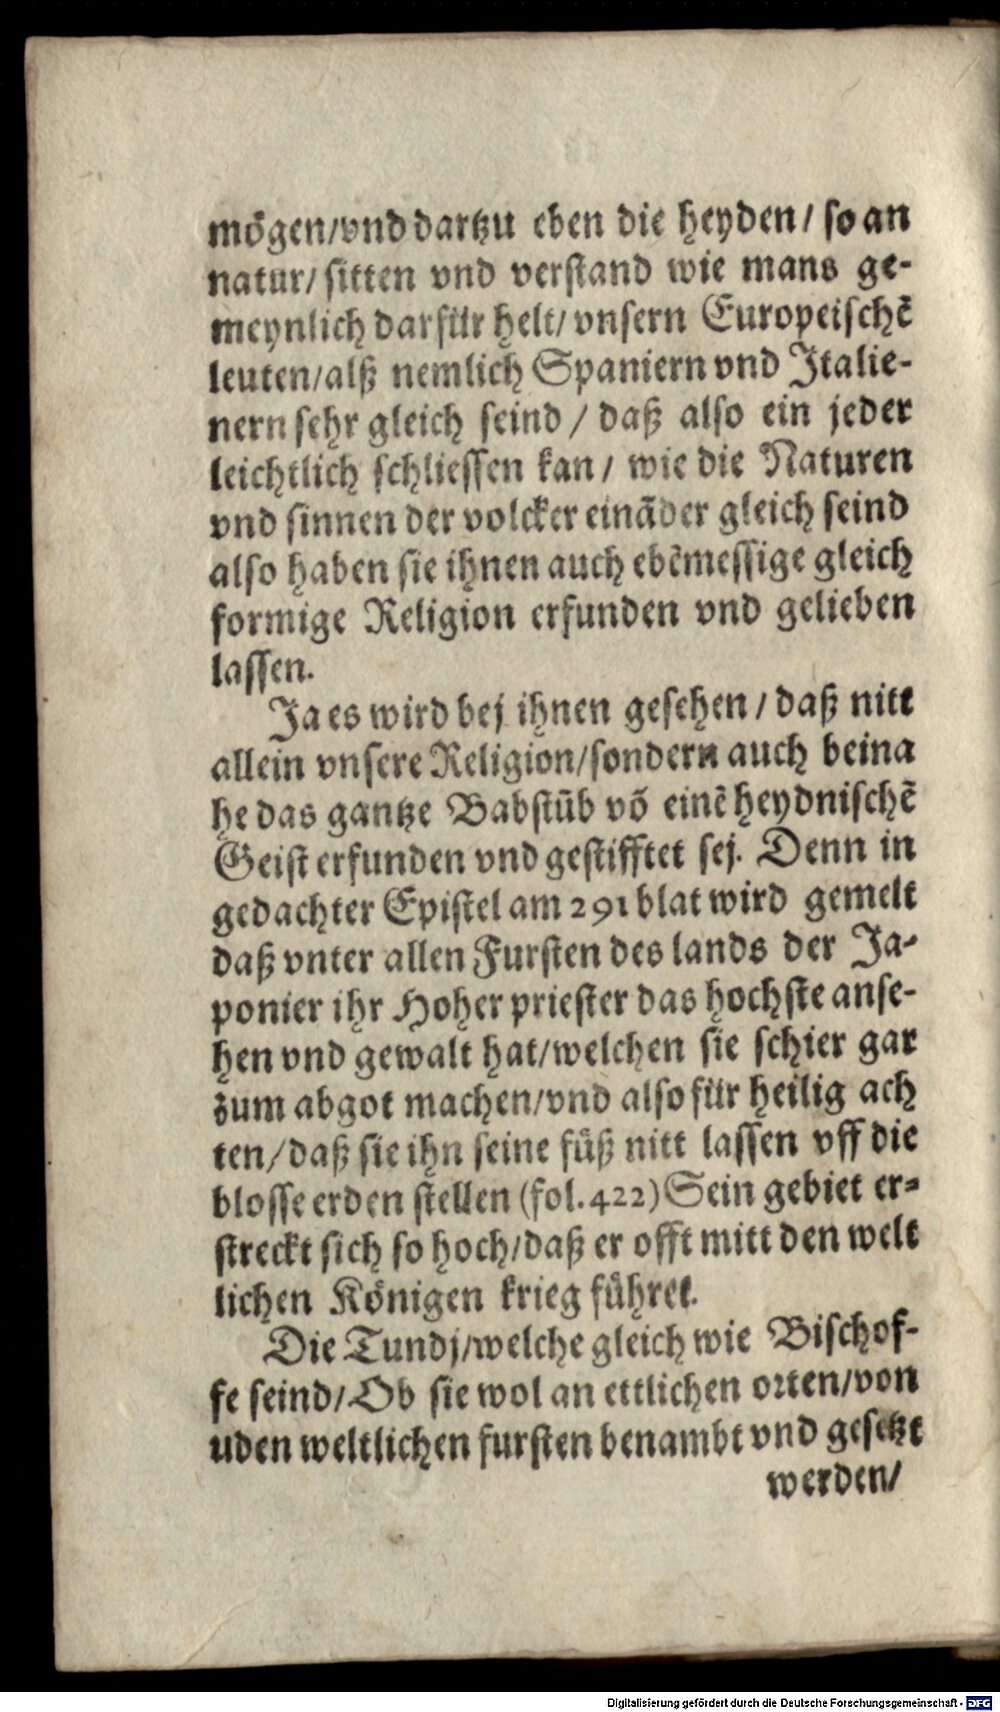 mögen/vnd dartzu eben die heyden/ so an
natur/ sitten vnd verstand wie mans ge-
meynlich darfür helt/ vnsern Europeischẽ
leuten/alß nemlich Spaniern vnd Italie-
nern sehr gleich seind / daß also ein jeder
leichtlich schliessen kan / wie die Naturen
vnd sinnen der volcker einãder gleich seind
also haben sie ihnen auch ebẽmessige gleich
formige Religion erfunden vnd gelieben
lassen.
Ja es wird bej ihnen gesehen / daß nitt
allein vnsere Religion/sondern auch beina
he das gantze Babstũb võ einẽ heydnischẽ
Geist erfunden vnd gestifftet sej. Denn in
gedachter Epistel am 291 blat wird gemelt
daß vnter allen Fursten des lands der Ja-
ponier ihr Hoher priester das hochste anse-
hen vnd gewalt hat/welchen sie schier gar
zum abgot machen/vnd also für heilig ach
ten/daß sie ihn seine füß nitt lassen vff die
blosse erden stellen (fol. 422) Sein gebiet er-
streckt sich so hoch/daß er offt mitt den welt
lichen Königen krieg führet.
Die Tundj/welche gleich wie Bischof-
fe seind/Ob sie wol an ettlichen orten/von
uden weltlichen fursten benambt vnd gesetzt
werden/
Digitalisierung gefördert durch die Deutsche Forschungsgemeinschaft - DFG